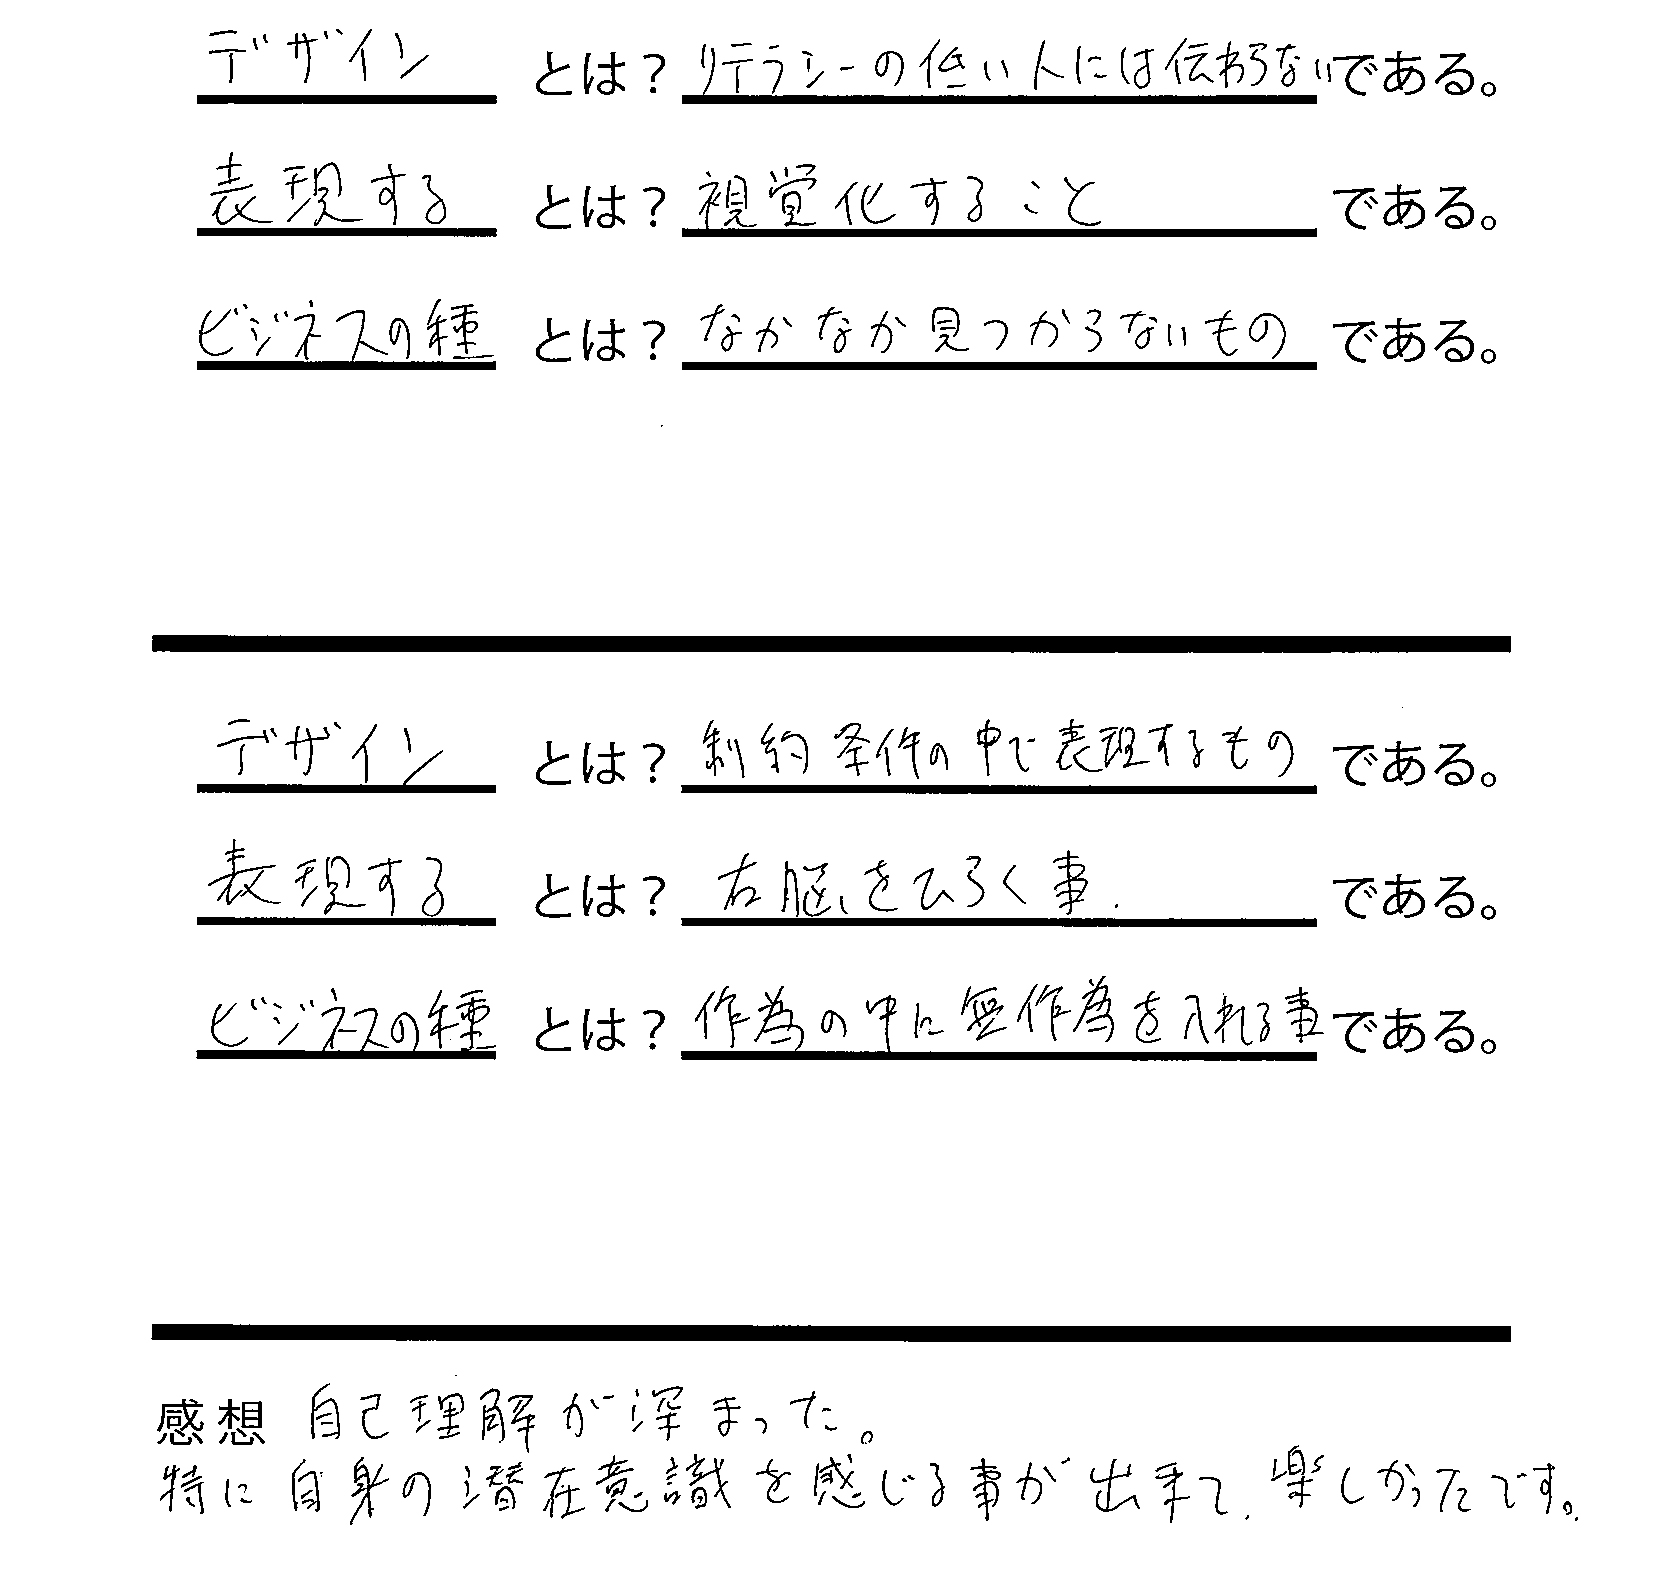 デザイン とは？ リテラシーの低い人には伝わらない である。
表現する とは？ 視覚化すること である。
ビジネスの種 とは？ なかなか見つからないもの である。
デザイン とは？ 制約条件の中で表現するもの である。
表現する とは？ 右脳をひらく事. である。
ビジネスの種 とは？ 作為の中に無作為を入れる事 である。
感想 自己理解が深まった。
特に自身の潜在意識を感じる事が出来て、楽しかったです。